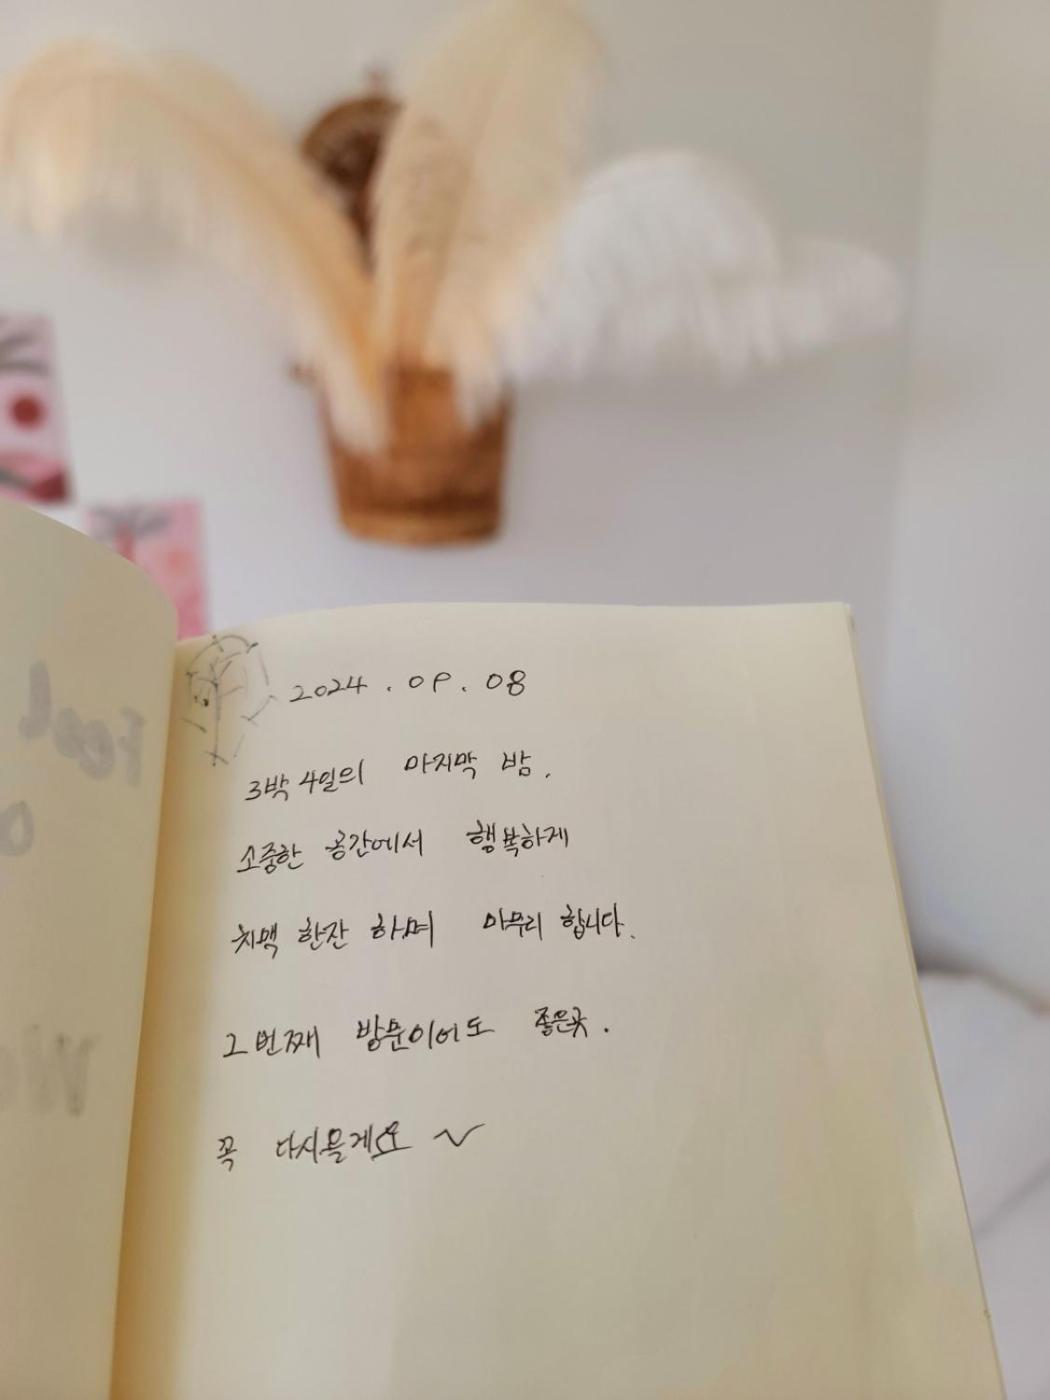 2024.09.08
3박 4일의 마지막 밤.
소중한 공간에서 행복하게
치맥 한잔 하며 마무리 합니다.
2번째 방문이어도 좋은곳.
꼭 다시올게요 ~